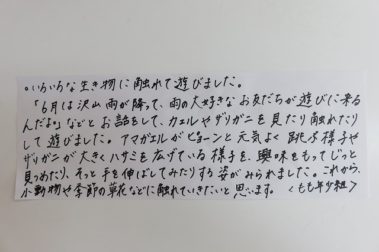 ○いろいろな生き物に触れて遊びました。
「6月は沢山雨が降って、雨の大好きなお友だちが遊びに来る
んだよ」などとお話をして、カエルやザリガニを見たり触れたり
して遊びました。アマガエルがピョーンと元気よく跳ぶ様子や
ザリガニが大きくハサミを広げている様子を、興味をもってじっと
見つめたり、そっと手を伸ばしてみたりする姿がみられました。これから、
小動物や季節の草花などに触れていきたいと思います。 〈もも年少組〉